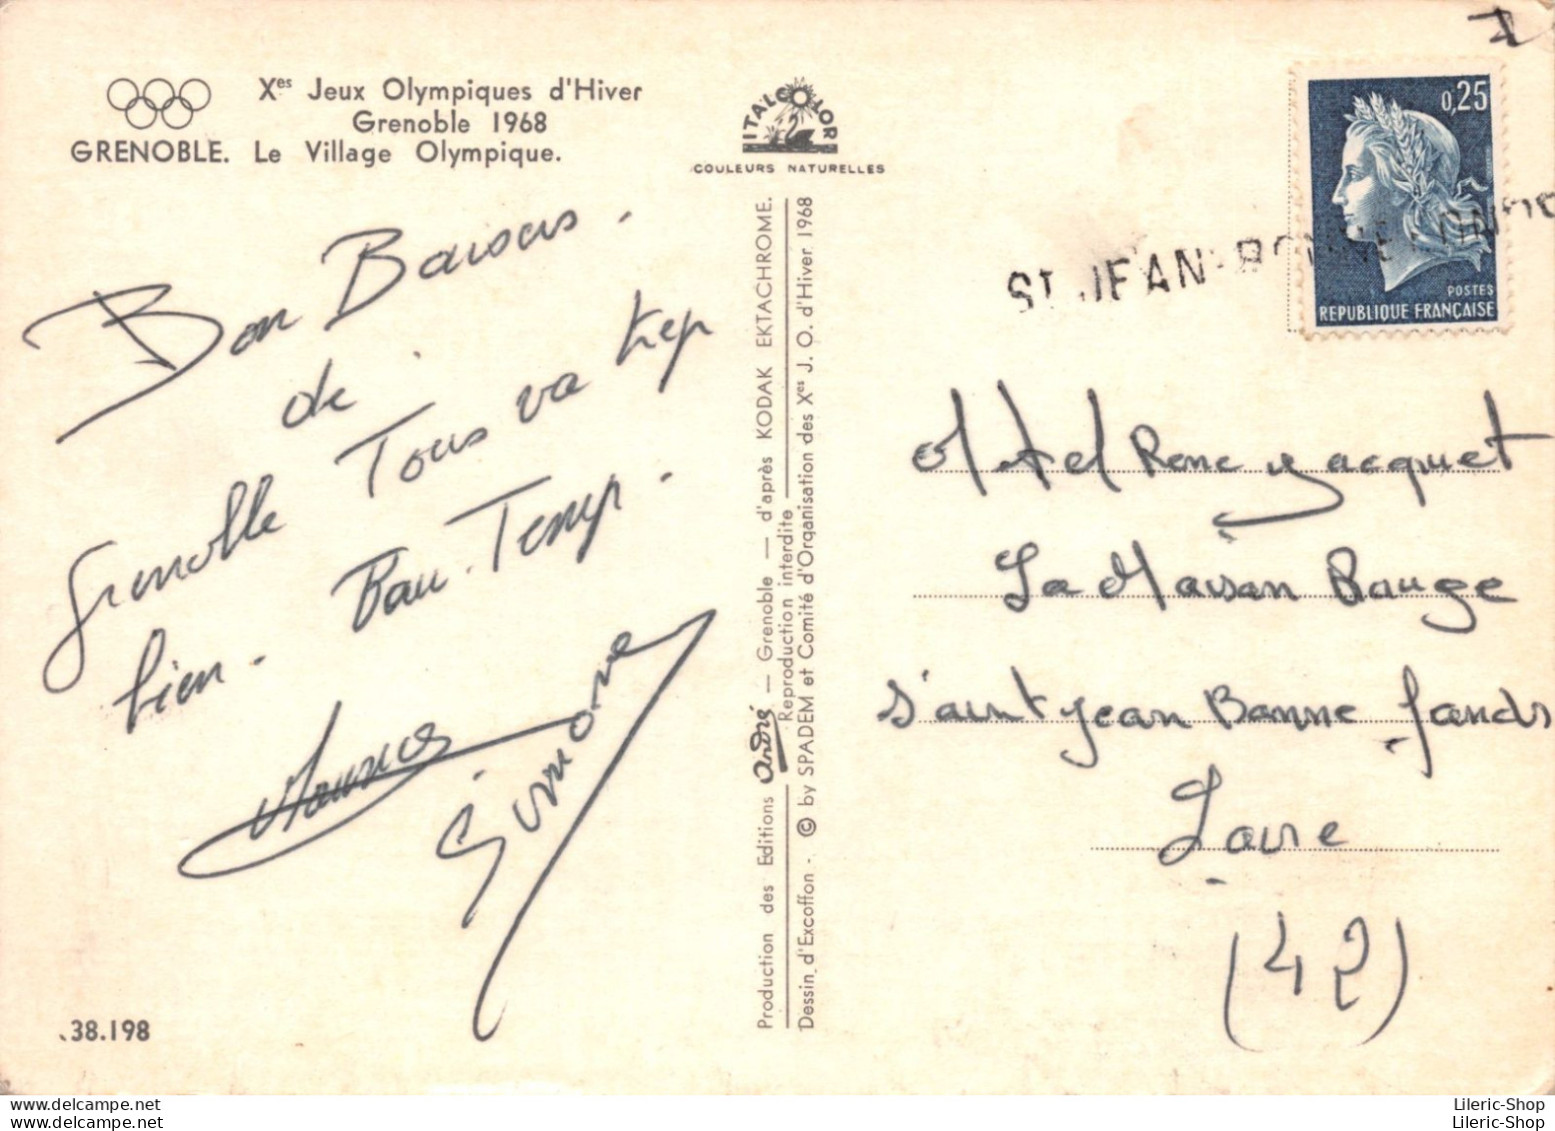 Xes Jeux Olympiques d'Hiver
Grenoble 1968
GRENOBLE. Le Village Olympique.
ITALCOLOR
COULEURS NATURELLES
0,25
POSTES
REPUBLIQUE FRANÇAISE
ST JEAN-BONNEFONDS
Bon Baisers.
de
Grenoble Tous va trep
bien. Bau Temp.
Simone
38.198
Production des Editions André — Grenoble — d'après KODAK EKTACHROME.
Reproduction interdite
Dessin d'Excoffon - © by SPADEM et Comité d'Organisation des Xes J. O. d'Hiver 1968
Hotel Rene Jacquet
La Maison Rouge
Saint Jean Bonne fonds
Loire
(42)
Lileric-Shop
Lileric-Shop
Lileric-Shop
Lileric-Shop